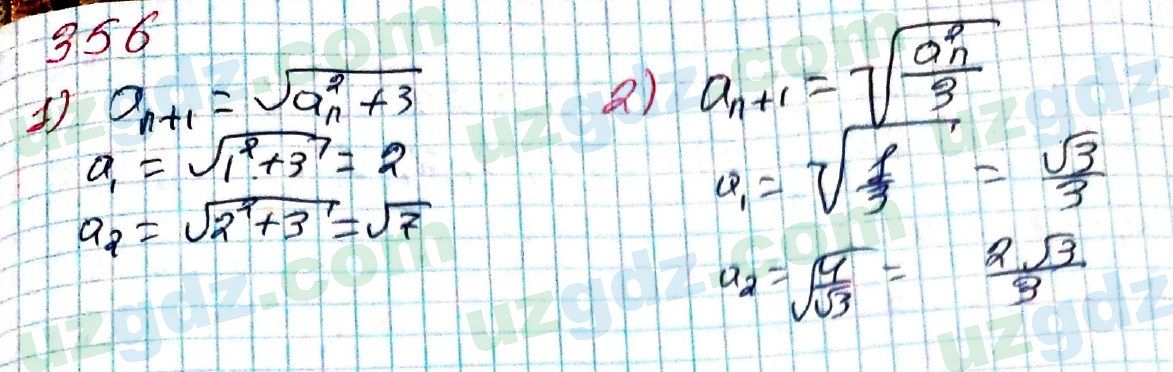 356
1) aₙ₊₁ = √(aₙ² + 3)
a₁ = √(1² + 3) = 2
a₂ = √(2² + 3) = √7
2) aₙ₊₁ = √(aₙ²/3)
a₁ = √(1/3) = √3/3
a₂ = √(4/√3) = 2√3/3
uzgdz.com
uzgdz.com
uzgdz.com
uzgdz.com
uzgdz.com